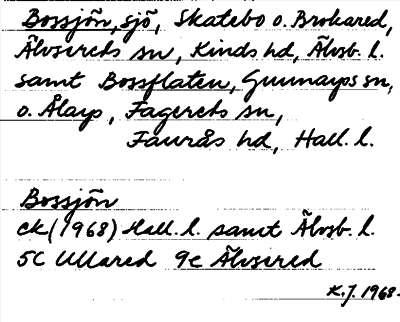 Bossjön, sjö, Skatebo o. Brokared,
Älvsereds sn, Kinds hd, Älvsb. l.
samt Bossflaten, Gunnarps sn,
o. Ålarp, Fagereds sn,
Faurås hd, Hall. l.
Bossjön
ek (1968) Hall. l. samt Älvsb. l.
5C Ullared 9e Älvsered
K.J. 1968.